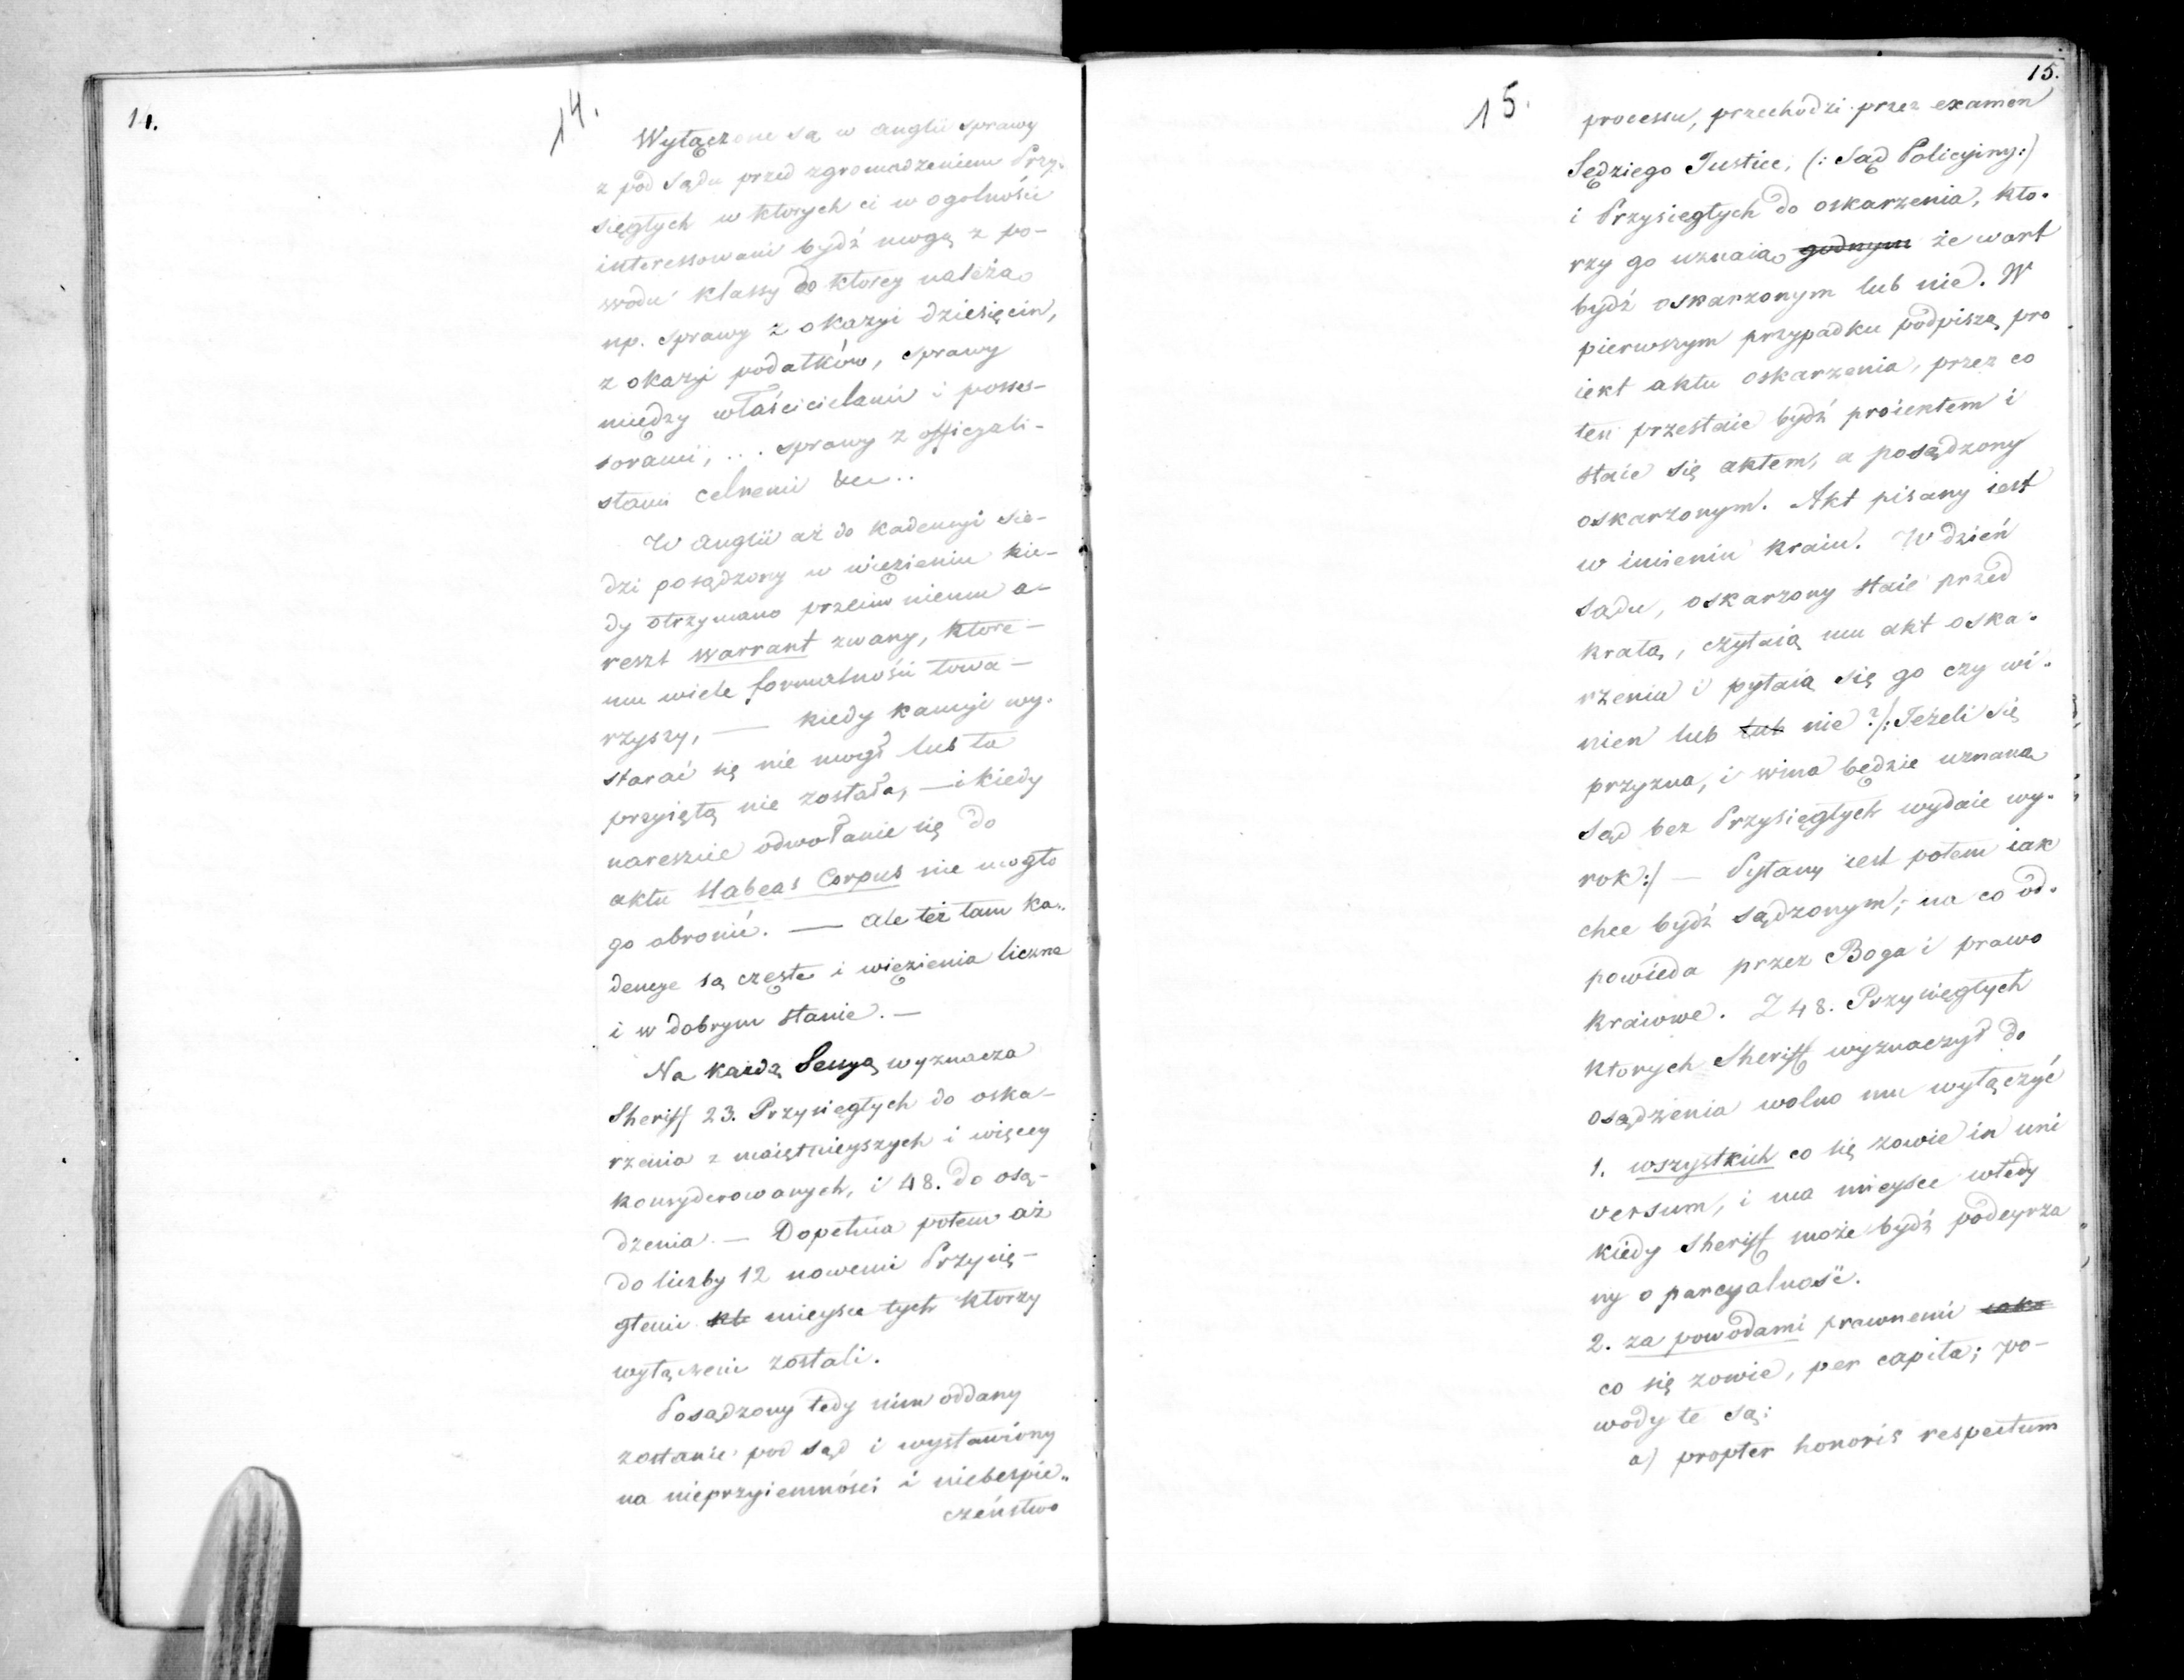 14.
14.
Wyłączone są w Anglii sprawy
z pod Sądu przed zgromadzeniem Przy-
sięgłych w ktorych ci w ogolności
interessowani bydź mogą z po-
wodu klassy do ktorey należą
np. sprawy z okazyi dziesięcin,
z okazyi podatków, sprawy
między właścicielami i posses-
sorami, ... sprawy z officyali-
stami celnemi &c..
W Anglii aż do kadencyi sie-
dzi posądzony w więzieniu kie-
dy otrzymano przeciw niemu a-
reszt warrant zwany, ktore-
mu wiele formalności towa-
rzyszy, — kiedy kaucyi wy-
starać się nie mogł lub ta
przyiętą nie została, — i kiedy
nareszcie odwołanie się do
aktu Habeas Corpus nie mogło
go obronić. — Ale też tam ka-
dencye są częste i więzienia liczne
i w dobrym stanie. —
Na każdą Sessyą wyznacza
Sheriff 23. Przysięgłych do oska-
rzenia z maiętnieyszych i więcey
konsyderowanych, i 48. do osą-
dzenia. — Dopełnia potem aż
do liczby 12 nowemi Przysię-
głemi kt mieysce tych ktorzy
wyłączeni zostali.
Posądzony tedy nim oddany
zostanie pod sąd i wystawiony
na nieprzyiemności i niebespie-
czeństwo
15.
15.
processu, przechodzi przez examen
Sędziego Justice, (: Sąd Policyiny :)
i Przysięgłych do oskarzenia, kto-
rzy go uznaią godnym że wart
bydź oskarzonym lub nie. W
pierwszym przypadku podpiszą pro
iekt aktu oskarzenia, przez co
ten przestaie bydź proiektem i
staie się aktem, a posądzony
oskarzonym. Akt pisany iest
w imieniu kraiu. W dzień
Sądu, oskarzony staie przed
kratą, czytaią mu akt oska-
rzenia i pytaią się go czy wi-
nien lub lub nie? /: Jeżeli się
przyzna, i wina będzie uznana
Sąd bez Przysięgłych wydaie wy-
rok :/ — Pytany iest potem iak
chce bydź sądzonym; na co od-
powieda przez Boga i prawo
kraiowe. Z 48. Przysięgłych
ktorych Sheriff wyznaczył do
osądzenia wolno mu wyłączyć
1. wszystkich co się zowie in uni
versum, i ma mieysce wtedy
kiedy Sheriff może bydź podeyrza
ny o parcyalność.
2. za powodami prawnemi iako
co się zowie, per capita; po-
wody te są:
a) propter honoris respectum